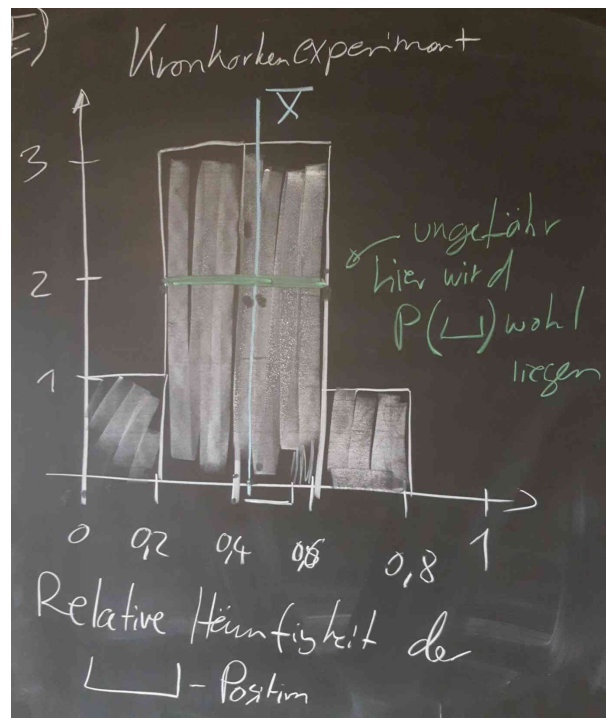 E)
Kronkorkenexperiment
X̅
3
2
1
ungefähr
hier wird
P(⎵) wohl
liegen
0 0,2 0,4 0,6 0,8 1
Relative Häufigkeit der
⎵-Position